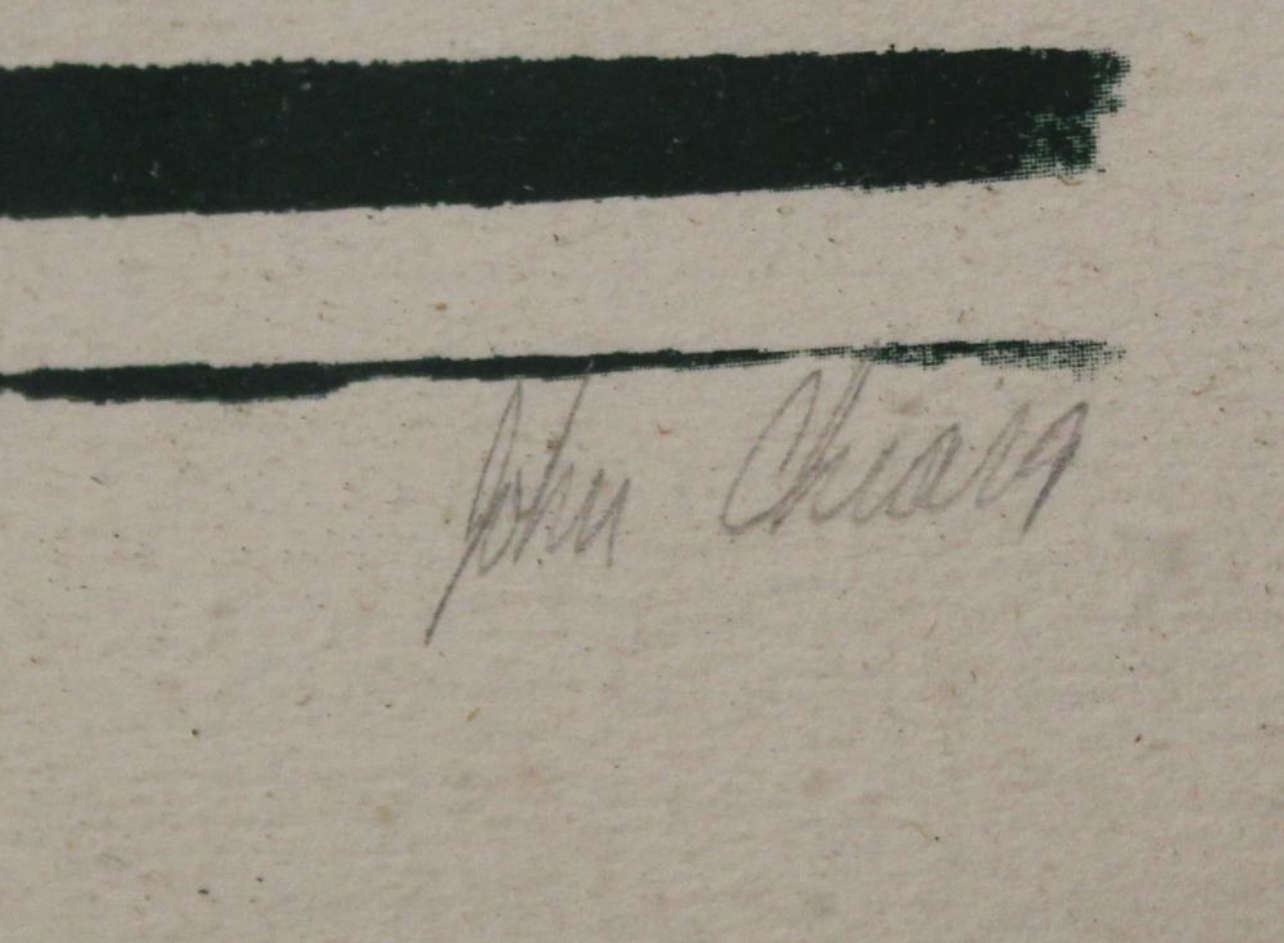 John Chiara